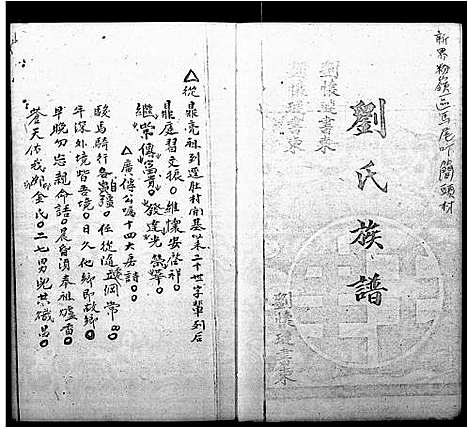 新界粉嶺區馬尾吓簡頭村
劉氏族譜
劉懷璉書柬
劉懷璉書柬
劉懷璉書柬
△從鼎亮祖到遷肚村開基以來二十世字輩列后
鼎庭習文振。維懷安啓祁。
繼常傳富貴。發達光榮華。
△廣傳公囑十四大房詩。
駿馬騎行各出疆。任從隨處立綱常。
年深外境皆吾境。日久他鄉即故鄉。
早晚勿忘親命語。晨昏須奉祖爐香。
蒼天佑我卯金氏。二七男兒共熾昌。